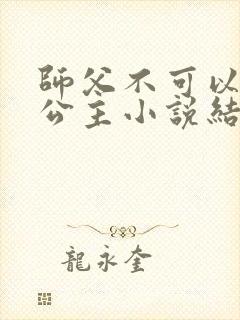 師父不可以
公主小說結
龍永奎